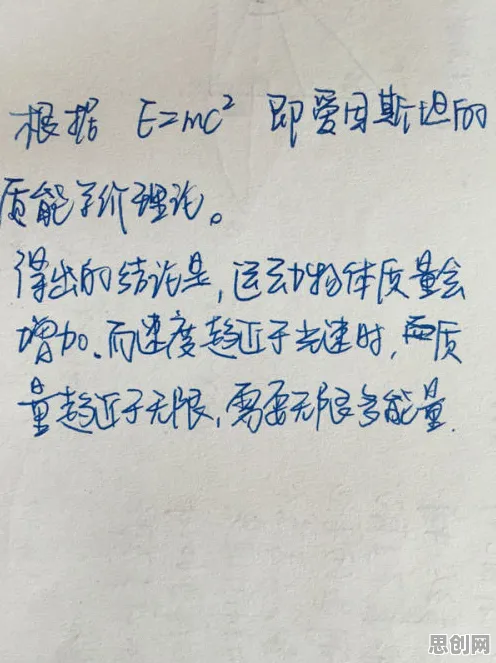 根据 E=mc² 即爱因斯坦的
质能等价理论。
得出的结论是,运动物体质量会
增加、而速度趋近于光速时,而质
量趋近于无限,需要无限多能量.
思创网